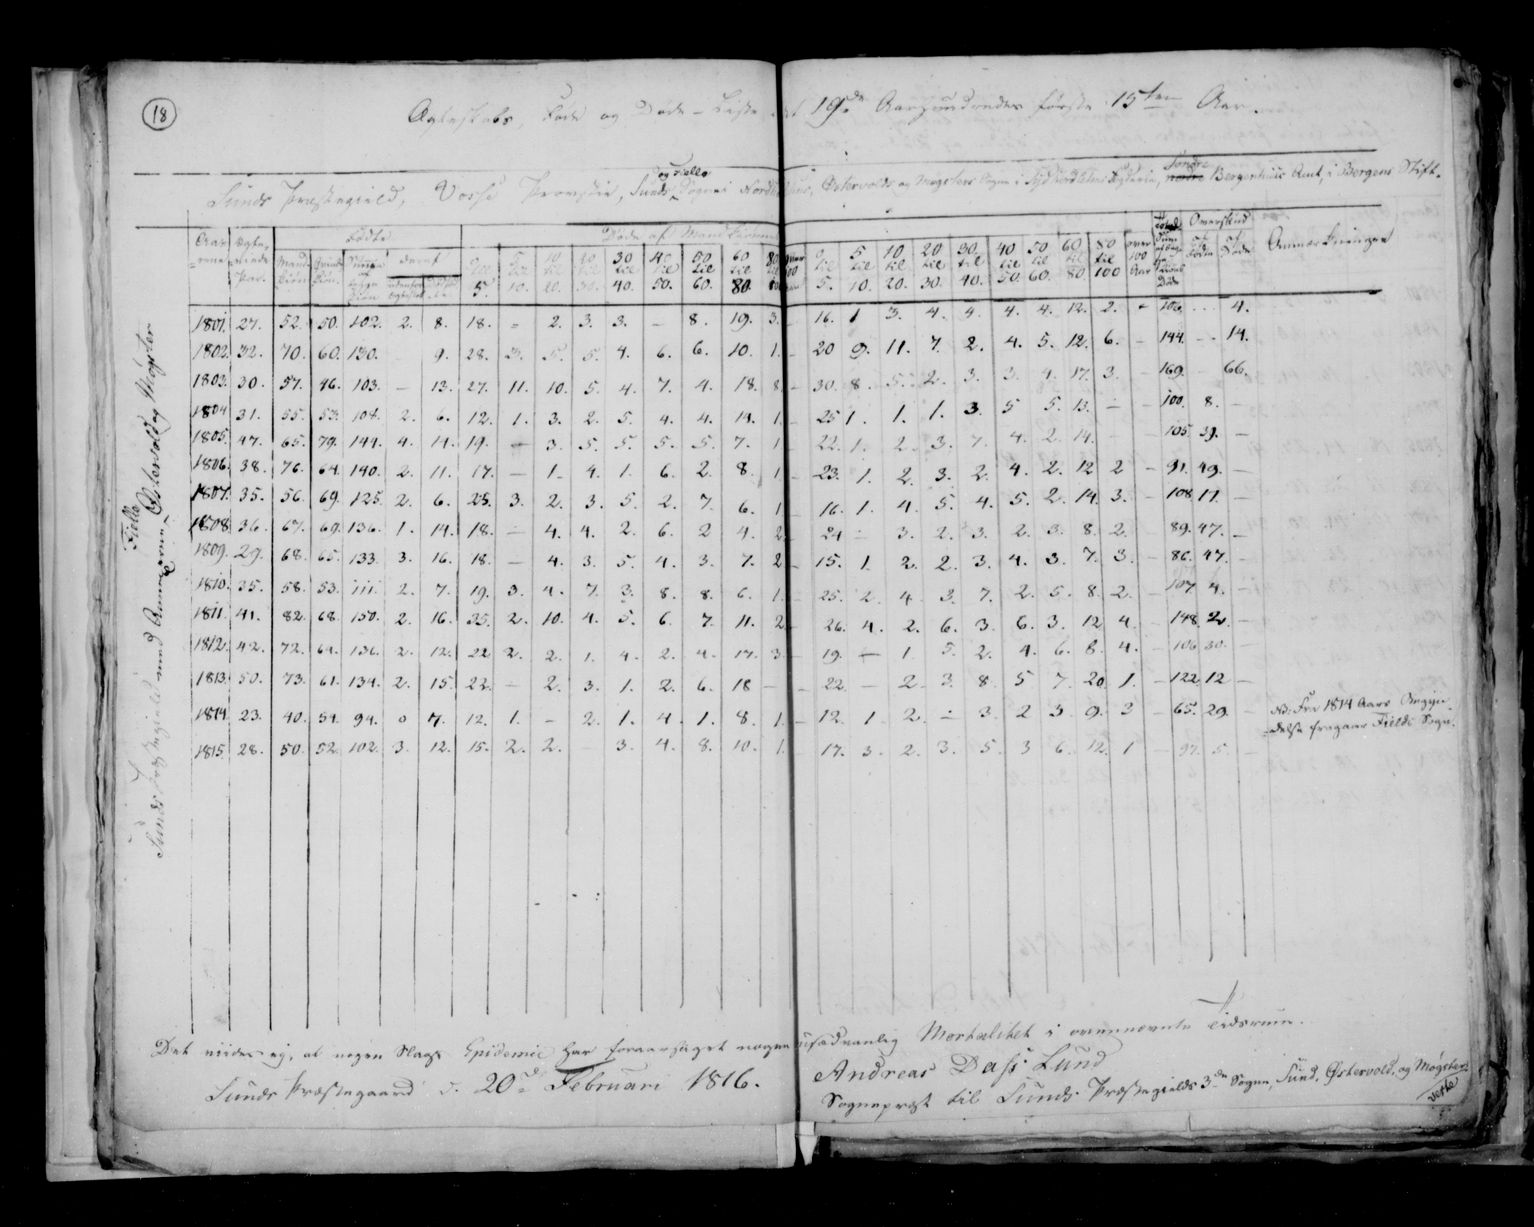 18
Ægteskabs, Føde og Døde-Liste 19de Aarhundredes første 15ten Aar.
og Fielle
Søndre
Sunds Præstegield, Vossi Provstie, Sunds Sogne i Nordhordlehns, Østervolds og Møgsters Sogn i Sydhordlehns Fogderie, nordre Bergenhuus Amt, i Bergens Stift.
Fødte
Døde af Mandkiønnet
Overskud
Aarene Ægteviede Par. Mandkiøn Qvindekiøn. Summa deraf
0 til 5. 5 til 10. 10 til 20. 20 til 30. 30 til 40. 40 til 50. 50 til 60. 60 til 80 80 til 100 over 100
0 til 5. 5 til 10. 10 til 20. 20 til 30. 30 til 40. 40 til 50. 50 til 60. 60 til 80 80 til 100 over 100 Aar
af Fødte af Døde Anmærkninger
1801. 27. 52. 50. 102. 2. 8. 18. - 2. 3. 3. - 8. 19. 3. - 16. 1 3. 4. 4. 4. 4. 12. 2. - 106. .. 4.
1802. 32. 70. 60. 130. 9. 28. 3. 5. 5. 4. 6. 6. 10. 1. - 20 9. 11. 7. 2. 4. 5. 12. 6. - 144. - 14.
1803. 30. 57. 46. 103. - 13. 27. 11. 10. 5. 4. 7. 4. 18. 8. - 30. 8. 5. 2. 3. 3. 4. 17. 3. - 169. - 66.
1804 31. 55. 53. 108. 2. 6. 12. 1. 3. 2. 5. 4. 4. 14. 1. - 25 1. 1. 1. 3. 5 5. 13. - - 100. 8. -
1805. 47. 65. 79. 144. 4. 14. 19. - 3. 5. 5. 5. 5. 7. 1 22. 1. 2. 3. 7. 4. 2. 14. - - 105. 39. -
1806. 38. 76. 64. 140. 2. 11. 17. - 1. 4. 1. 6. 2. 8. 1 - 23. 1. 2. 3. 2. 4. 2. 12 2 - 91. 49. -
1807. 35. 56. 69. 125. 2. 6. 23. 3. 2. 3. 5. 2. 7. 6. 1 - 16. 1. 4. 5. 4. 5. 2. 14. 3. - 108. 17. -
1808. 36. 67. 69. 136. 1. 14. 18. - 4. 4. 2. 6. 2 4. 2. 24 - 3. 2. 3. 2. 3. 8. 2. - 89. 47. -
1809. 29. 68. 65. 133. 3. 16. 18. - 4. 3. 5. 4. 3. 7. 2 - 15. 1. 2. 2. 3. 4. 3. 7. 3. - 86. 47. -
1810. 35. 58. 53. 111. 2. 7. 19. 3. 4. 7. 3. 8. 8. 6. 1 - 25. 2. 4. 3. 7. 2. 5. 8. 2. - 107 4. -
1811. 41. 82. 68. 150. 2. 16. 25. 2. 10. 4. 5. 6. 7. 11. 2. - 26. 4. 2. 6. 3. 6. 3. 12 4. - 148 2. -
1812. 42. 72. 64. 136. 2. 12. 22 2. 2. 1. 4. 2. 4. 17. 3 - 19. - 1. 5. 2. 4. 6. 8. 4. - 106 30. -
1813. 50. 73. 61. 134. 2. 15. 22. - 2. 3. 1. 2. 6. 18 - - 22 - 2. 3. 8. 5 7. 20 1. - 122. 12 -
1814. 23. 40. 54. 94. 0 7. 12. 1. - 2. 1. 4. 1. 8. 1. - 12. 1 2. - 3. 2 3. 9. 3 - 65. 29. - NB: Fra 1814 Aars Begyn-
delse fragaar Fields Sogn.
1815. 28. 50. 52. 102. 3. 12. 15. 2. 2. - 3. 4. 8. 10. 1. - 17. 3. 2. 3. 5. 3 6. 12. 1 - 97. 5. -
Fielle
Sunds Præstegield med Annexerne, Østervold og Møgster
Det viides ej, at nogen Slags Epidemie har foraarsaget nogen usædvanlig Mortalitet i ovennævnte Tidsrum.
Sunds Præstegaard d. 20de Februari 1816.
Andreas Dass Lund
Sogneprest til Sunds Præstegields 3de Sogne, Sund, Østervold, og Møgster.